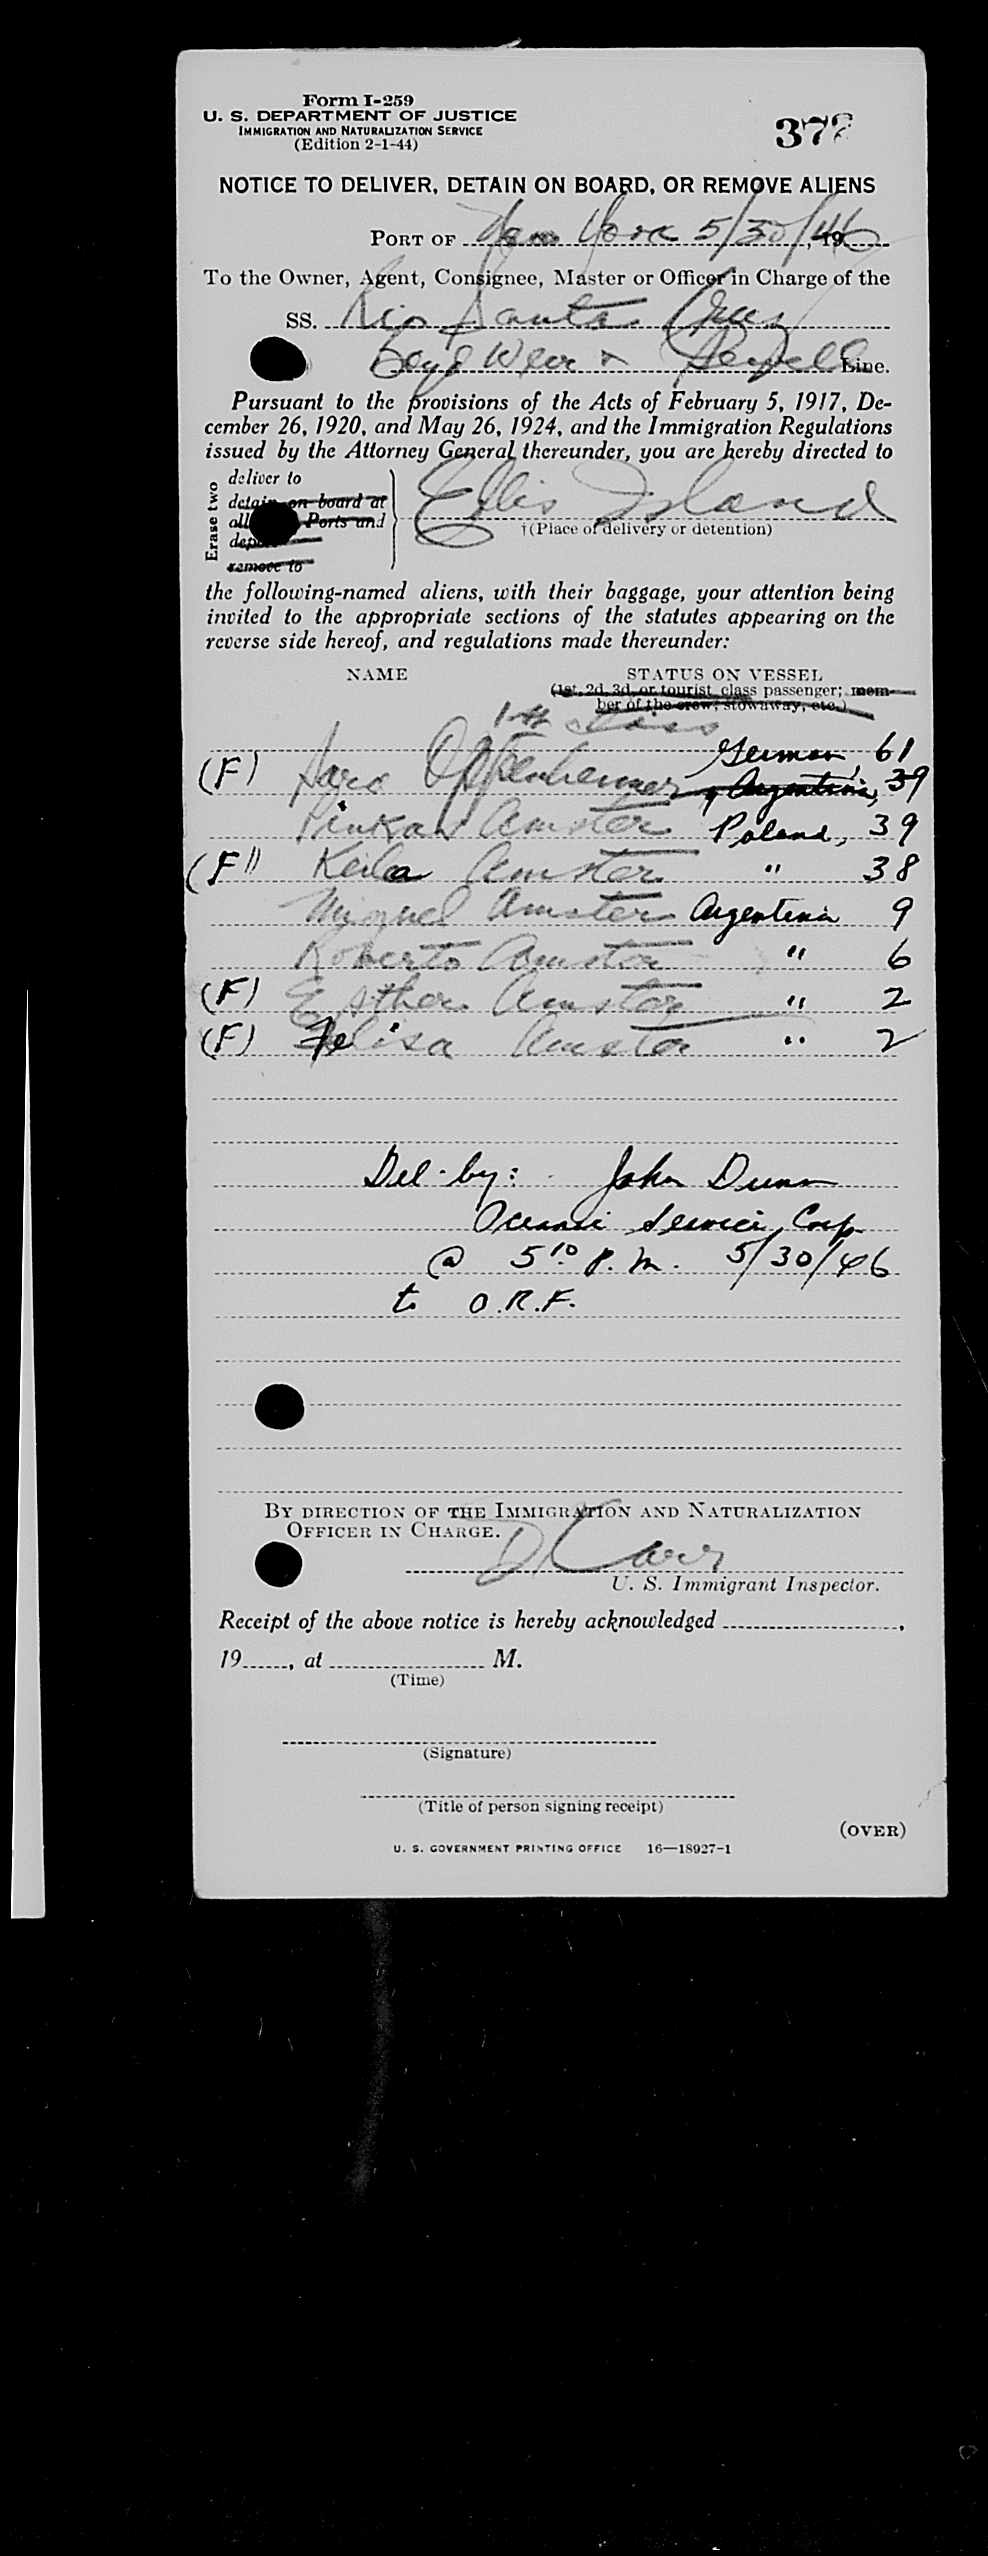 Form I-259
U. S. DEPARTMENT OF JUSTICE
IMMIGRATION AND NATURALIZATION SERVICE
(Edition 2-1-44)
378
NOTICE TO DELIVER, DETAIN ON BOARD, OR REMOVE ALIENS
PORT OF New York 5/30/46, 19
To the Owner, Agent, Consignee, Master or Officer in Charge of the
SS. Rio Santa Cruz
Boyd Weir & Sewell Line.
Pursuant to the provisions of the Acts of February 5, 1917, De-
cember 26, 1920, and May 26, 1924, and the Immigration Regulations
issued by the Attorney General thereunder, you are hereby directed to
Erase two
deliver to
detain on board at
all Ports and
remove to
Ellis Island
†(Place of delivery or detention)
the following-named aliens, with their baggage, your attention being
invited to the appropriate sections of the statutes appearing on the
reverse side hereof, and regulations made thereunder:
NAME STATUS ON VESSEL
(1st, 2d, 3d, or tourist class passenger; mem-
ber of the crew; stowaway, etc.)
1st Class
German, 61
(F) Sara Oppenheimer Argentina, 39
Pinkas Amster Poland, 39
(F) Keila Amster " 38
Miguel Amster Argentina 9
Roberto Amster " 6
(F) Esther Amster " 2
(F) Felisa Amster " 2
Del. by: John Dunn
Oceanic Service Corp.
@ 5¹⁰ P. M. 5/30/46
to O.R.F.
BY DIRECTION OF THE IMMIGRATION AND NATURALIZATION
OFFICER IN CHARGE.
D. Carr
U. S. Immigrant Inspector.
Receipt of the above notice is hereby acknowledged ,
19 , at M.
(Time)
(Signature)
(Title of person signing receipt)
(OVER)
U. S. GOVERNMENT PRINTING OFFICE 16—18927-1